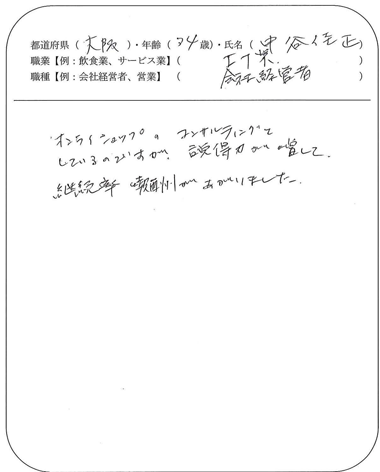 都道府県（大阪）・年齢（34歳）・氏名（中谷佳正）
職業【例：飲食業、サービス業】（ IT業 ）
職種【例：会社経営者、営業】（ 会社経営者 ）
オンラインショップのコンサルティングを
しているのですが、説得力が増して、
継続率 報酬があがりました。